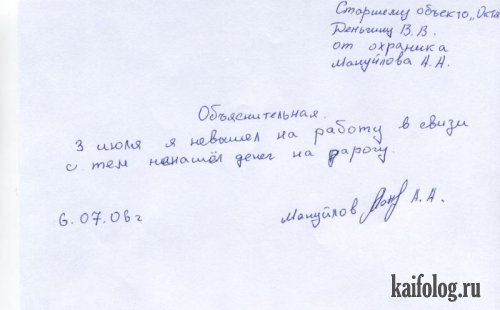 Старшему объекто „Окта
Деньгину В.В.
от охраника
Мануйлова А.А.
Объяснительная.
3 июля я невышел на работу в свизи
с тем ненашёл денег на дарогу.
6.07.06г
Мануйлов А.А.
kaifolog.ru